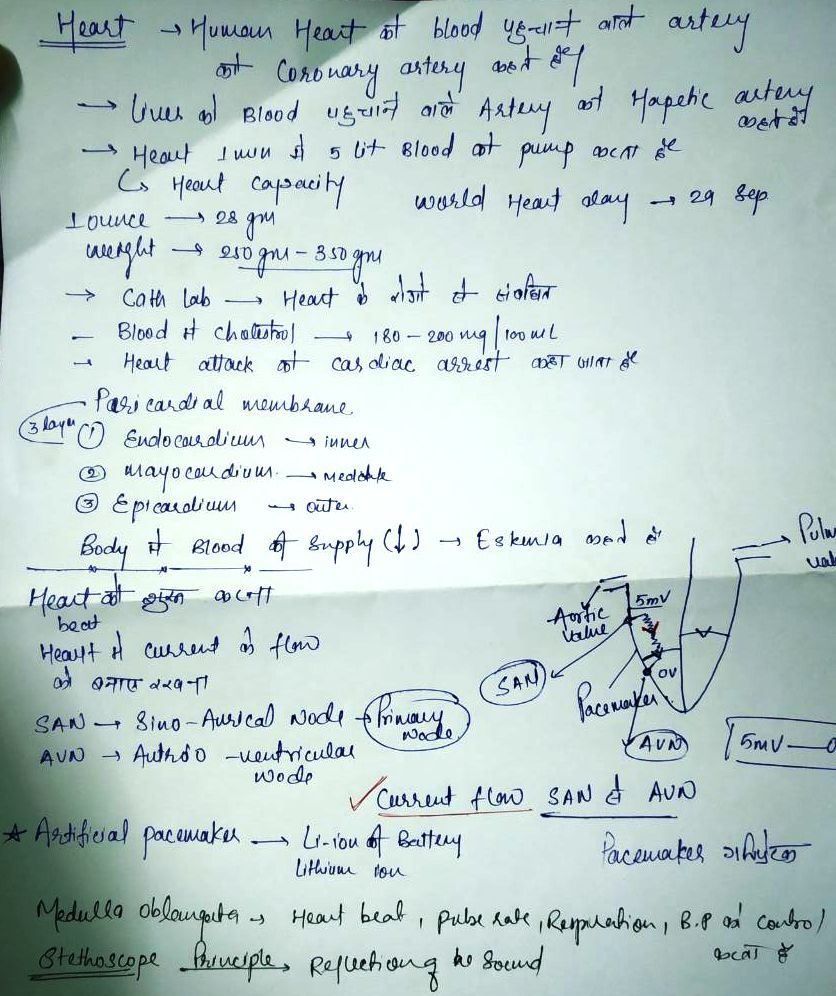 Heart → Human Heart को blood पहुचाने वाले artery
को Coronary artery कहते हैं
→ Liver को Blood पहुचाने वाले Artery को Hapetic artery
कहते हैं
→ Heart 1 min में 5 lit Blood को pump करता है
↳ Heart capacity
World Heart day → 29 Sep
1 ounce → 28 gm
weight → 250 gm - 350 gm
→ Cath Lab → Heart के रोगो से संबंधित
- Blood में cholestrol → 180 - 200 mg/100 mL
→ Heart attack को cardiac arrest कहा जाता है
Paricardial membrane
3 layer ① Endocardium → inner
② Mayocardium →
③ Epicardium → outer
Body में Blood की Supply (↓) → Eskemia कहते हैं
Heart को करना
beat
Heart में current के flow
को बनाए रखना
SAN → Sino-Aurical Node → Primary
Node
AVN → -ventricular
Node
Aortic
Value
5mV
SAN
Pacemaker
0V
AVN
5mV — 0
✓ Current flow SAN से AVN
★ Artificial pacemaker → Li-ion of Battery
Lithium ion
Pacemaker
Medulla oblangata → Heart beat, Pulse rate, Respiration, B.P को control
करता है
Stethoscope Principle → Reflection of the Sound